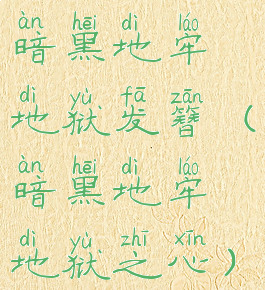 àn hēi dì láo
暗黑地牢
dì yù fà zān
地狱发簪（
àn hēi dì láo
暗黑地牢
dì yù zhī xīn
地狱之心）